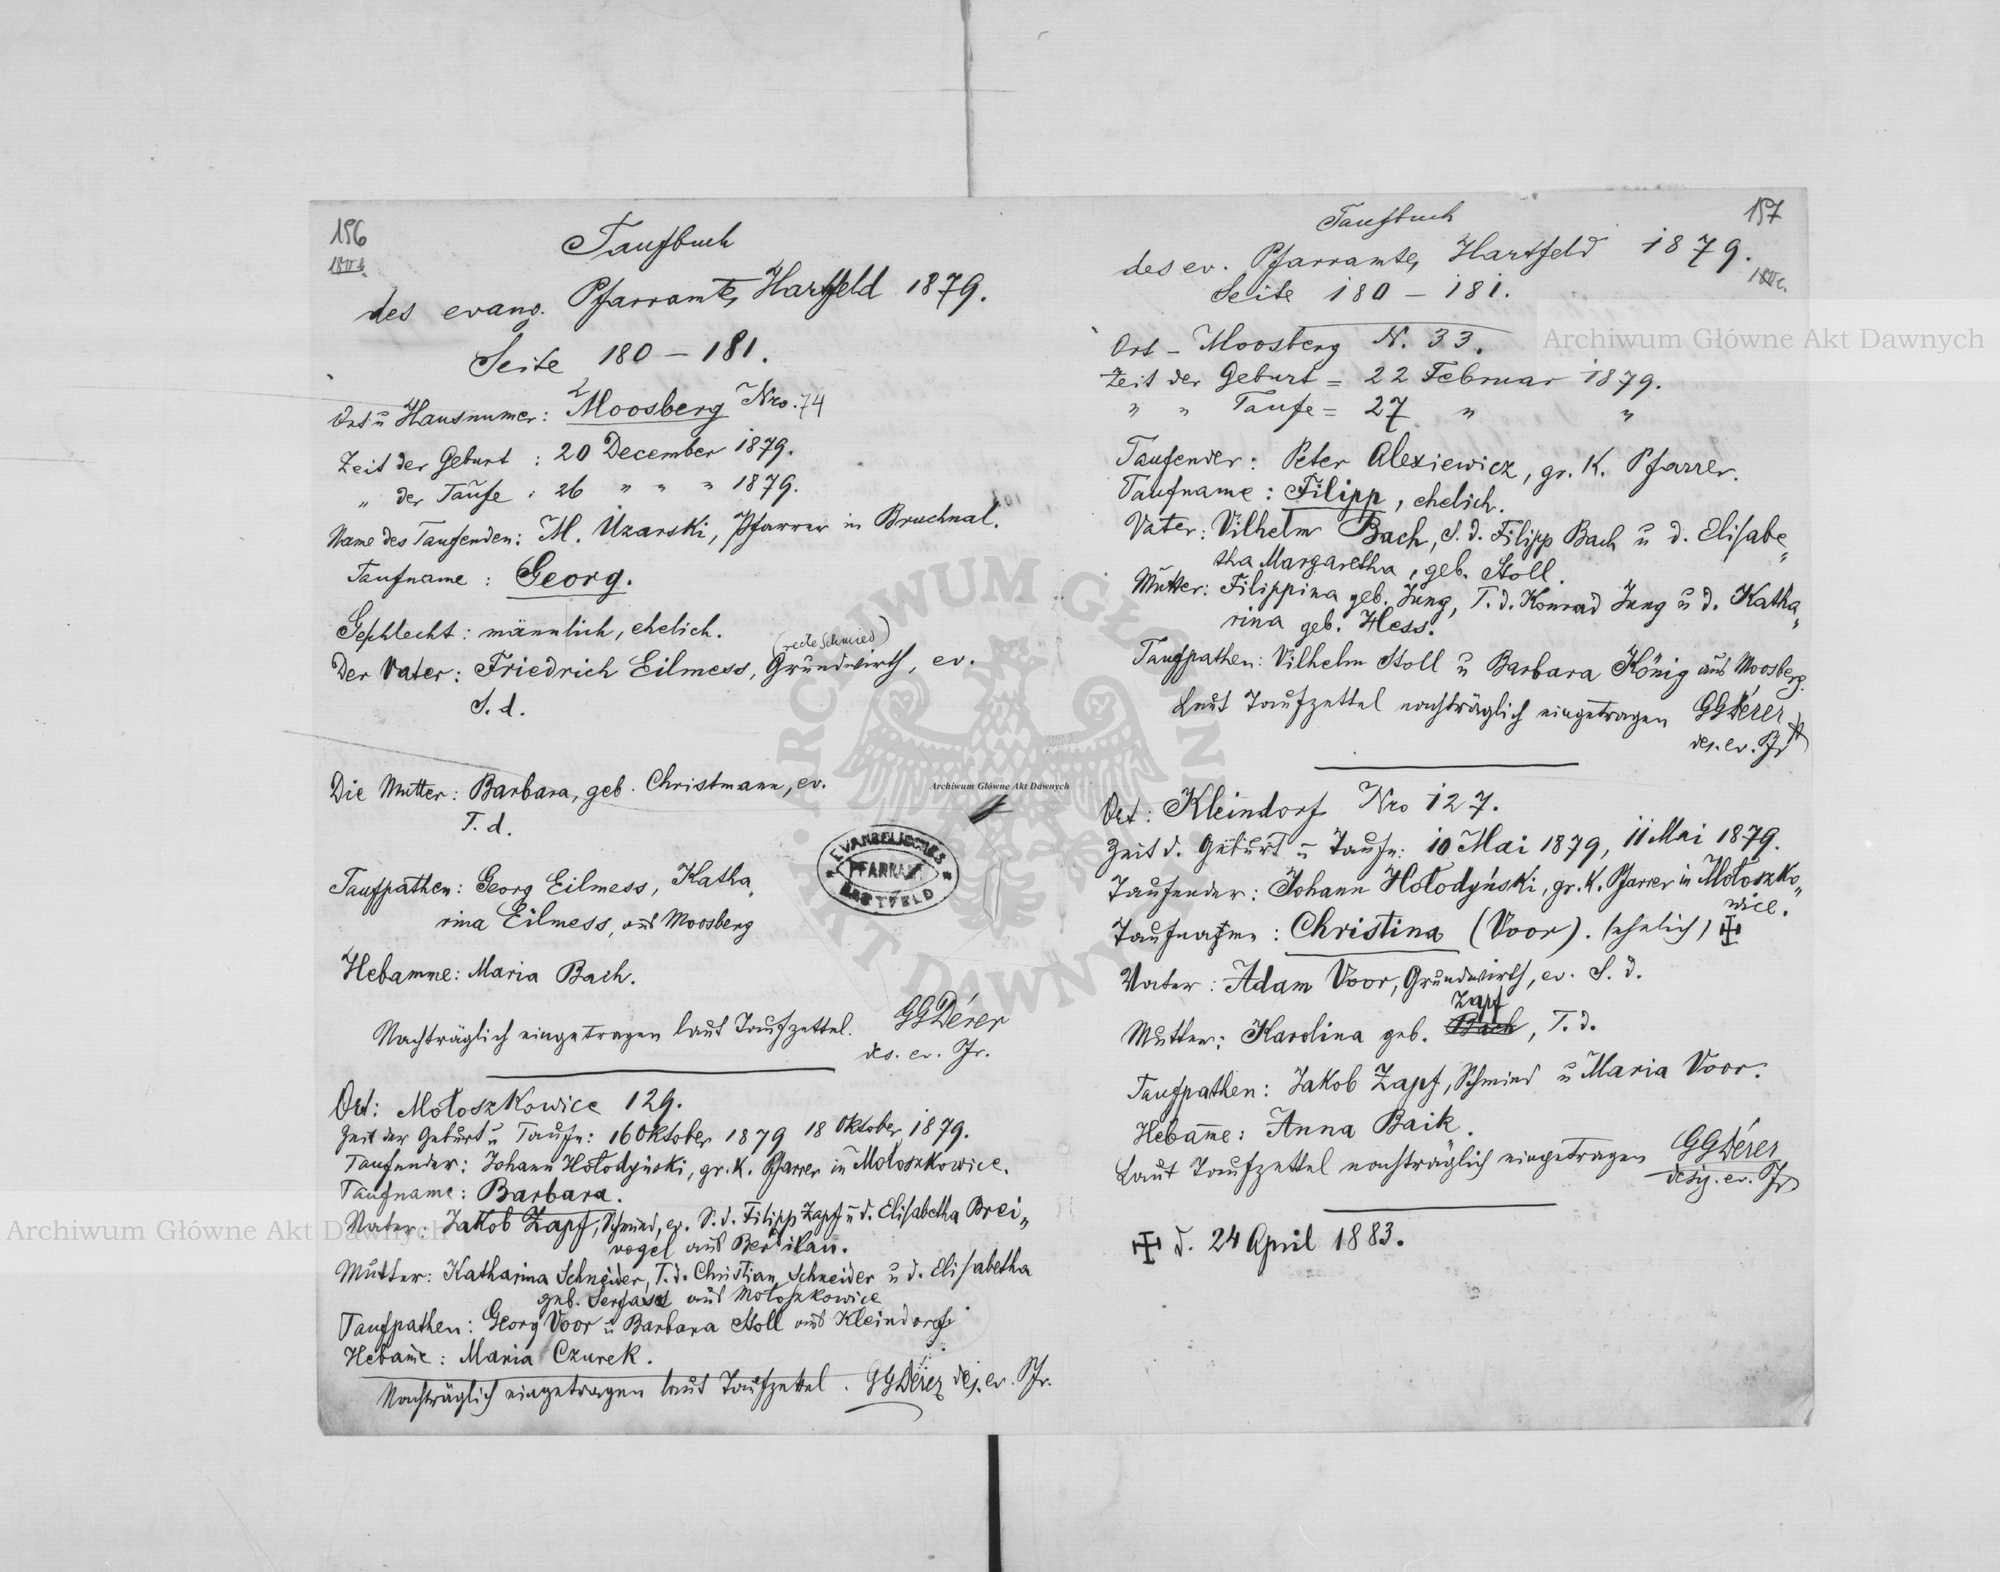 156
180b.
Taufbuch
des evang. Pfarramts Hartfeld 1879.
Seite 180 – 181.
Ort u Hausnumer: Moosberg Nro. 74
Zeit der Geburt : 20 December 1879.
„ der Taufe : 26 „ „ „ 1879.
Name des Taufenden: M. Uzarski, Pfarrer in Bruchnal.
Taufname : Georg.
Geschlecht: männlich, ehelich.
(recte Schmied)
Der Vater: Friedrich Eilmess, Grundwirth, ev.
S. d.
Die Mutter: Barbara, geb. Christmann, ev.
T. d.
Taufpathen: Georg Eilmess, Katha„
rina Eilmess, aus Moosberg
Hebamme: Maria Bach.
Nachträglich eingetragen laut Taufzettel. GGDérer
des. ev. Pfr.
EVANGELISCHES
PFARRAMT
HARTFELD
Ort: Mołoszkowice 129.
Zeit der Geburt u Taufe: 16 Oktober 1879 18 Oktober 1879.
Taufender: Johann Hołodyński, gr. K. Pfarrer in Mołoszkowice.
Taufname: Barbara.
Vater: Jakob Zapf, Schmied, ev. S. d. Filipp Zapf u d. Elisabetha Brei„
vogel aus Berdikau.
Mutter: Katharina Schneider, T. d. Christian Schneider u d. Elisabetha
geb. aus Mołoszkowice
Taufpathen: Georg Voor u Barbara Stoll aus Kleindorf
Hebame: Maria Czurek.
Nachträglich eingetragen laut Taufzettel. GGDérer des. ev. Pfr.
157
180c.
Taufbuch
des ev. Pfarramts Hartfeld 1879.
Seite 180 – 181.
Ort – Moosberg N. 33.
Zeit der Geburt = 22 Februar 1879.
„ „ Taufe = 27 „ „
Taufender: Peter Alexiewicz, gr. K. Pfarrer.
Taufname: Filipp, ehelich.
Vater: Vilhelm Bach, S. d. Filipp Bach u d. Elisabe„
tha Margaretha, geb. Stoll.
Mutter: Filippina geb. Jung, T. d. Konrad Jung u d. Katha„
rina geb. Hess.
Taufpathen: Vilhelm Stoll u Barbara König aus Moosberg.
Laut Taufzettel nachträglich eingetragen GGDérer
des. ev. Pfr
Ort: Kleindorf Nro 127.
Zeit d. Geburt u Taufe: 10 Mai 1879, 11 Mai 1879.
Taufender: Johann Hołodyński, gr. K. Pfarrer in Mołoszko„
wice.
Taufname: Christina (Voor). (ehelich) ☩
Vater: Adam Voor, Grundwirth, ev. S. d.
Zapf
Mutter: Karolina geb. Bach, T. d.
Taufpathen: Jakob Zapf, Schmied u Maria Voor.
Hebame: Anna Baik.
Laut Taufzettel nachträglich eingetragen GGDérer
desig. ev. Pfr
☩ d. 24 April 1883.
Archiwum Główne Akt Dawnych
Archiwum Główne Akt Dawnych
Archiwum Główne Akt Dawnych
ARCHIWUM GŁÓWNE
AKT DAWNYCH